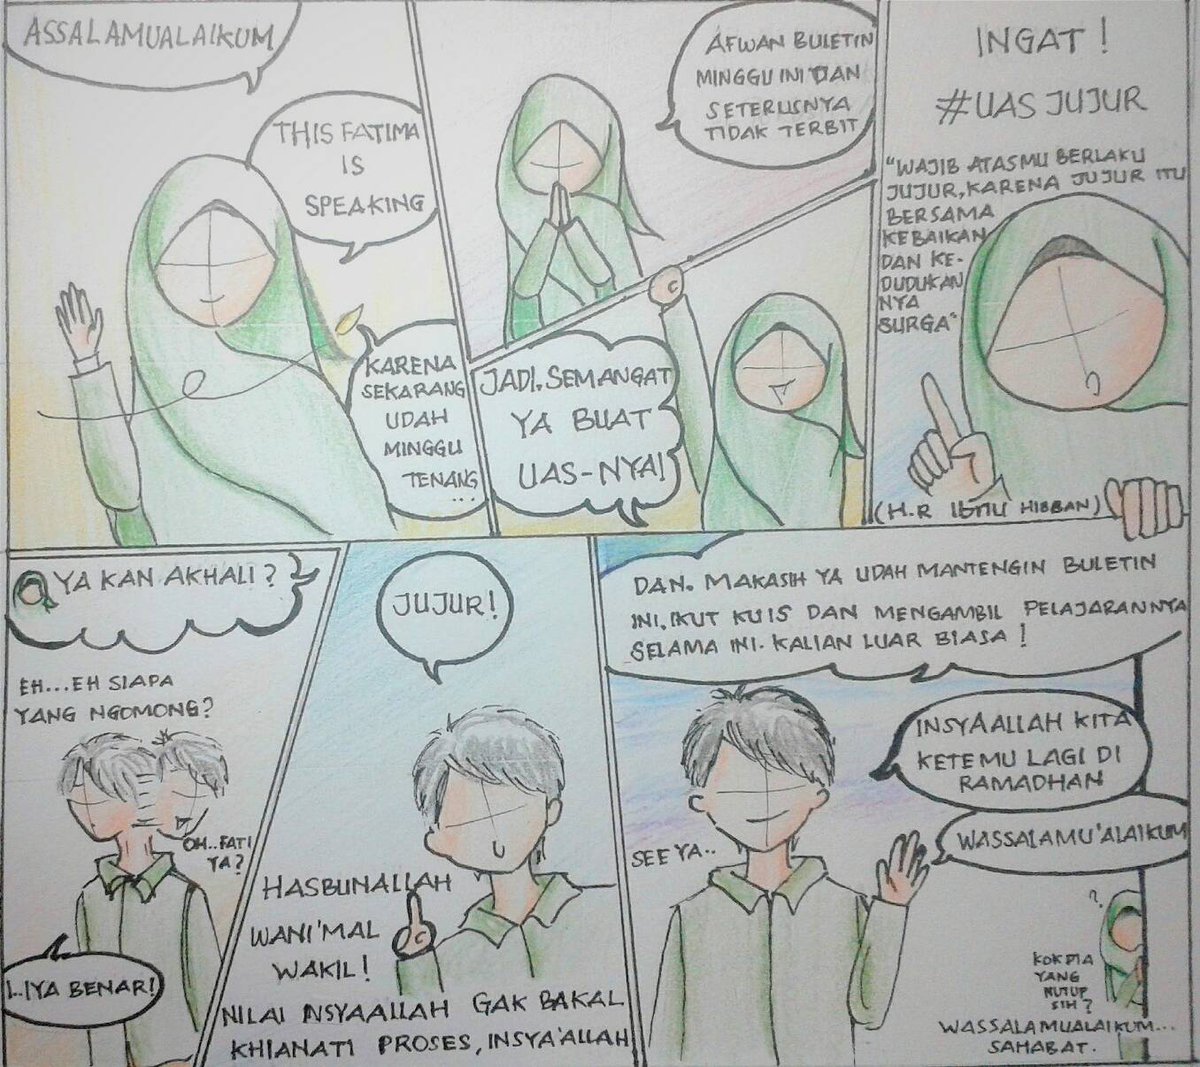 ASSALAMUALAIKUM
THIS FATIMA
IS
SPEAKING
KARENA
SEKARANG
UDAH
MINGGU
TENANG
...
AFWAN BULETIN
MINGGU INI DAN
SETERUSNYA
TIDAK TERBIT
JADI. SEMANGAT
YA BUAT
UAS-NYA!
INGAT!
#UAS JUJUR
"WAJIB ATASMU BERLAKU
JUJUR, KARENA JUJUR ITU
BERSAMA
KEBAIKAN
DAN KE-
DUDUKAN
NYA
SURGA"
(H.R IBNU HIBBAN)
YA KAN AKHALI?
EH...EH SIAPA
YANG NGOMONG?
OH..FATI
YA?
I..IYA BENAR!
JUJUR!
HASBUNALLAH
WANI'MAL
WAKIL!
NILAI INSYAALLAH GAK BAKAL
KHIANATI PROSES, INSYA'ALLAH
DAN. MAKASIH YA UDAH MANTENGIN BULETIN
INI, IKUT KUIS DAN MENGAMBIL PELAJARANNYA
SELAMA INI. KALIAN LUAR BIASA!
INSYAALLAH KITA
KETEMU LAGI DI
RAMADHAN
SEE YA..
WASSALAMU'ALAIKUM
?
KOK DIA
YANG
NUTUP
SIH?
WASSALAMUALAIKUM...
SAHABAT.